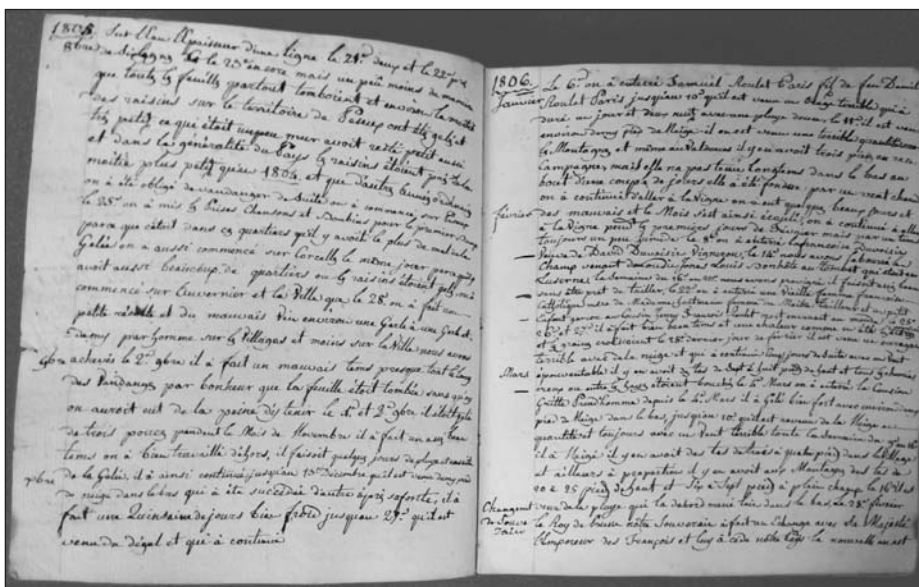 1805. Sur l'Eau l'Epaisseur d'une Ligne le 21e deux et le 22e
8bre le 23e encore mais un peu moins de maniere
que toutes les feuilles partout tomboient et environ la moitié
des raisins sur le territoire de Peseux ont été gelés et
très petit ce qui étoit un peu meur avoit resté petit aussi
et dans la généralité du Pays les raisins étoient près de la
moitié plus petit qu'en 1804. et que d'autres années
on a été obligé de vandanger de suite on a commencé sur Peseux
le 25e on a mis les Prises Chansons et pour le premier
parce que c'étoit dans ces quartiers qu'il y avoit le plus de mal de la
Gelée on a aussi commencé sur Corcelles le même jour parce qu'ils
avoit aussi beaucoup de quartiers ou les raisins étoient gelés on a
commencé sur Auvernier et la Ville que le 28e on a fait
petite et du mauvais Vin environ une Gerle à une Gerle et
par homme sur les Villages et moins sur la Ville nous avons
9bre achevés le 2e 9bre il a fait un mauvais tems presque tout le long
des Vandanges par bonheur que la feuille étoit tombée sans quoi
on auroit eut de la peine le 1er et 2e 9bre
de trois pouces pendent le Mois de Novembre il a fait un assez beau
tems on a bien travaillé dehors, il faisoit quelques jours de pluye et ensuite
de la Gelée, il a ainsi continué jusqu'au 13e Décembre qu'il est venu
de neige dans le bas qui a été succedée d'autre il a
fait une Quinzaine de jours bien froid jusqu'au 27e qu'il est
venu du dégel et qui a continué
1806. Le 6e on a enterré Samuel Roulet Paris fils de feu David
Janvier Roulet Paris jusqu'au 10e qu'il est venu un Orage terrible qui a
duré un jour et deux nuits avec une pluye douce, le 11e il est venu
environ demy pied de Neige il en est venu une terrible quantité sur
les Montagnes et même au il y en avoit trois pieds en rase
Campagne, mais elle n'a pas tenu longtems dans le bas au
bout d'une coupe de jours elle a été fondue par un vent chaud
on a continué d'aller à la Vigne on a eut quelques beaux jours et
février des mauvais et le Mois s'est ainsi écoulé, on a continué à aller
à la Vigne pendt les premiers jours de fevrier mais par un tems
toujours un peu humide le 8e on a enterré la françoise
Veuve de David Duvoisin Vigneron, le 14e nous avons labouré les
Champ Louis qui étoit en
Luzerne, la Semaine du 16e au nous avons il faisoit assez beau
sans être net de tailler, le 22e on a enterré une Vieille femme françoise
Catholique mère de Madame femme du Maitre Tailleur et un petit
Enfant garçon au Cousin Jean François Roulet le 25e
26e et 27e il a fait bien beau tems et une chaleur comme en été
et les grains croissoient le 28e dernier jour de fevrier il est venu un ouragan
terrible avec de la neige et qui a continué cinq jours de suite avec un Vent
Mars épouventable il y en avoit des tas de Sept à huit pieds de haut et tous les chemins
étoient bouchés le 4e Mars on a enterré la Cousine
Prud'homme depuis le 4e Mars il a Gelé bien fort avec environ demy
pied de Neige dans le bas, jusqu'au 10e qu'il est revenu de la Neige en
quantité et toujours avec un Vent terrible toute la Semaine du
il a Neigé il y en avoit des tas de trois à quatre pieds dans le Village
et ailleurs à proportion il y en avoit aux Montagnes des tas de
20 à 25 pieds de haut et Six à Sept pieds à plein champ le 16e il est
Changement venu de la pluye qui l'a de bas le 28e fevrier
de Souve le Roy de Prusse nôtre Souverain a fait un Change avec Sa Majesté
rain l'Empereur des François et luy a cédé nôtre Pays la nouvelle en est